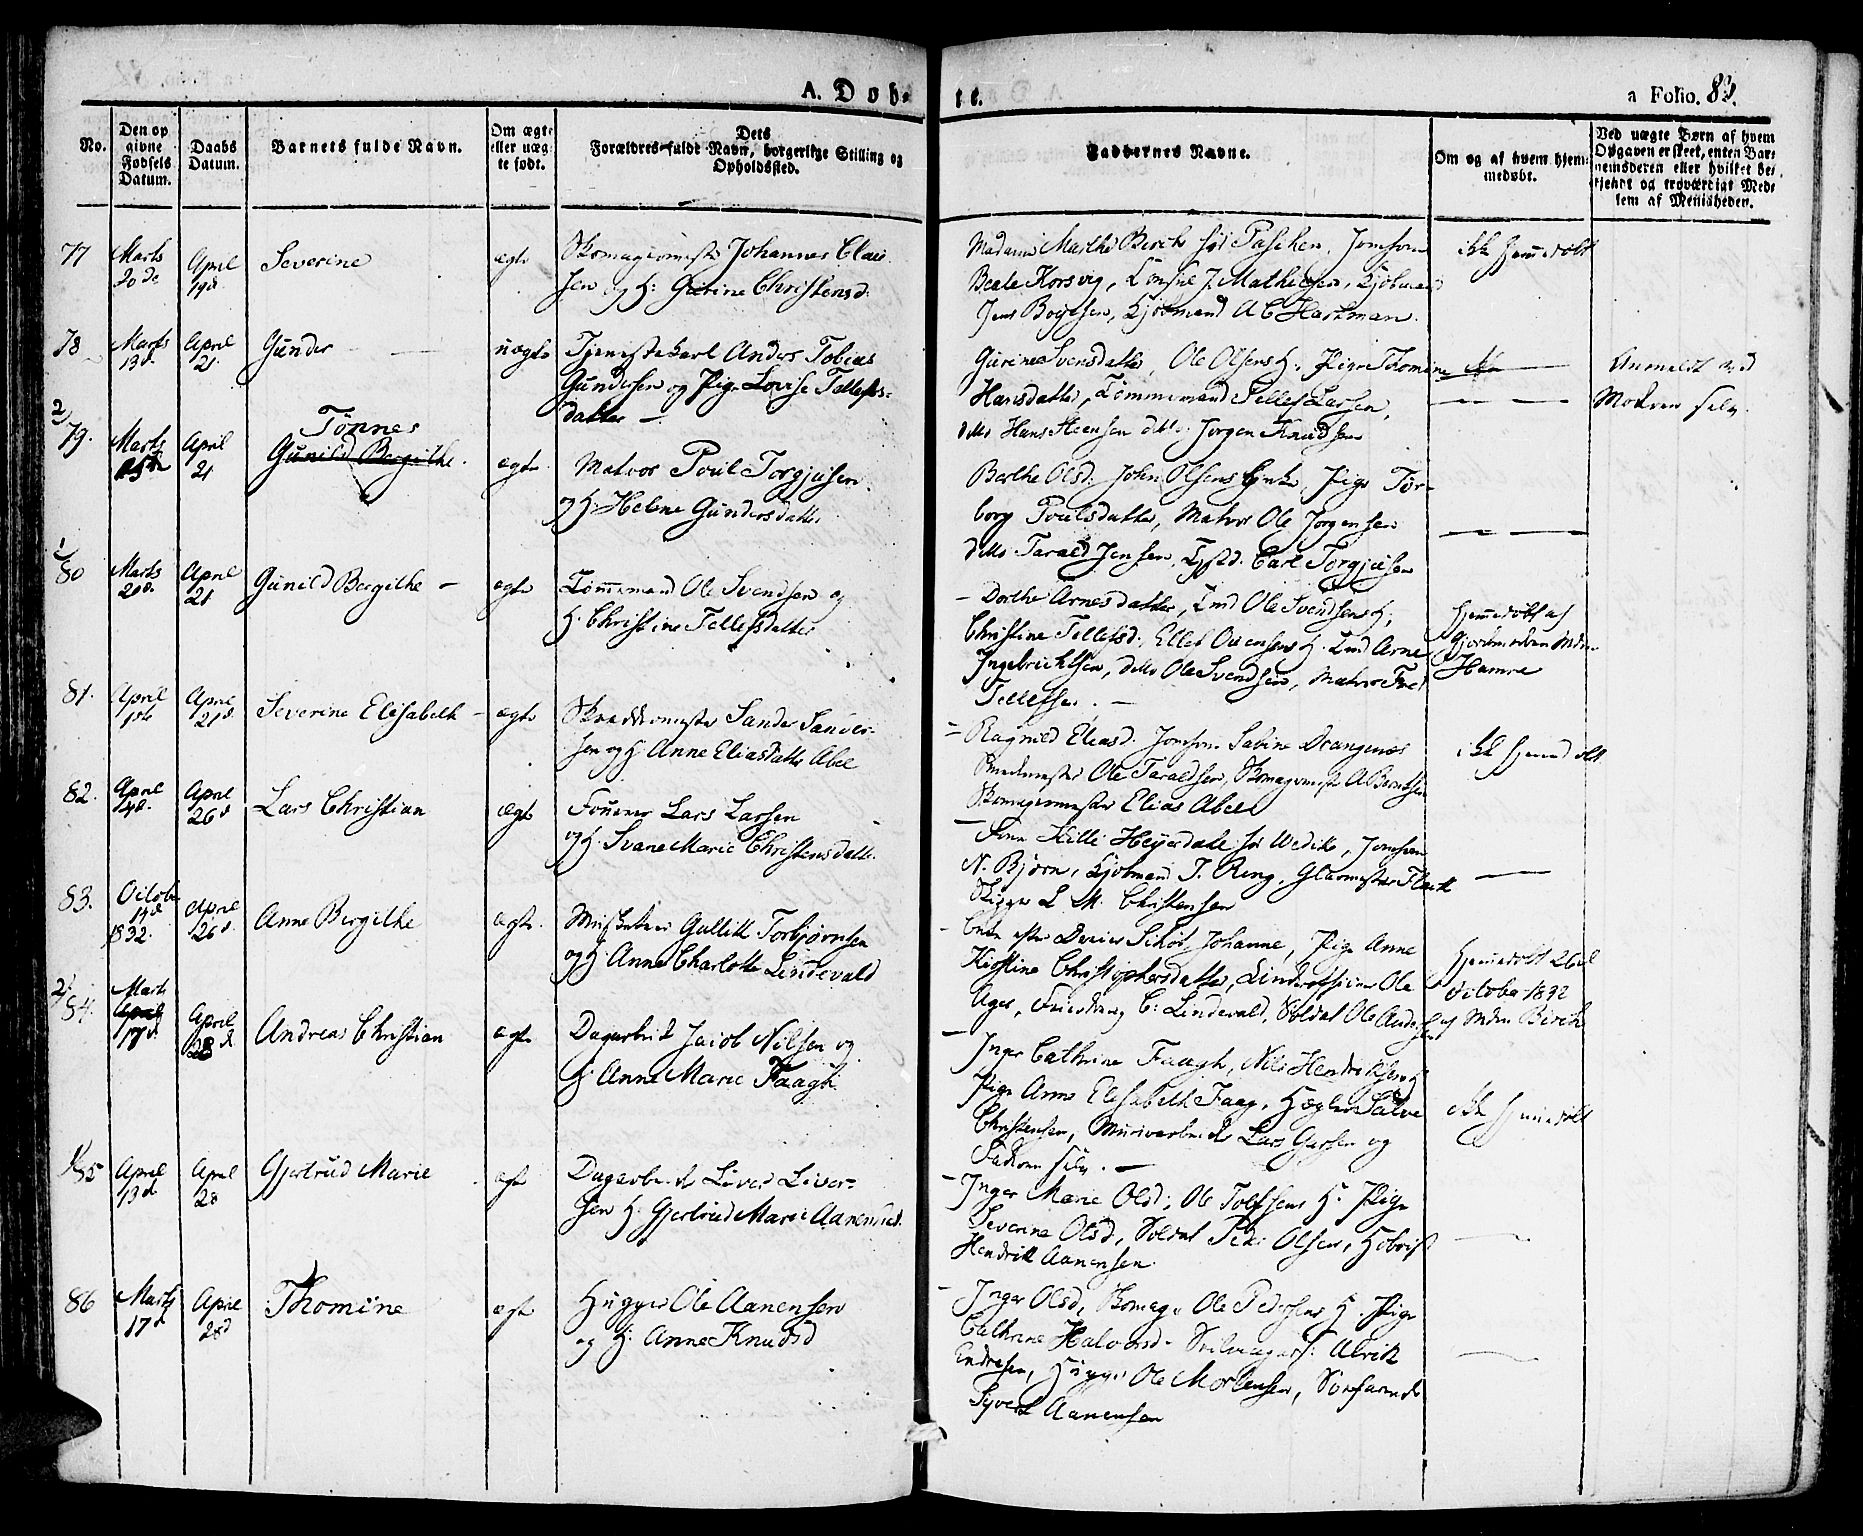 A. Døb-
te.
a Folio. 82.
No.
Den op
givne
Fødsels
Datum.
Daabs
Datum.
Barnets fulde Navn.
Om ægte
eller uæg-
te født.
Dets
Forældres fulde Navn, borgerlige Stilling og
Opholdssted.
Faddernes Navne.
Om og af hvem hjem-
medøbt.
Ved uægte Børn af hvem
Opgaven er skeet, enten Bar-
nemoderen eller hvilket be-
kjendt og troværdigt Med-
lem af Menigheden.
77
Marts
20de
April
19d.
Severine
ægte
Skomagermester Johannes Clau-
sen og H: Gurine Christensd.
Madame Marthe Birch fød Paschen, Jomfrue
Beate Korsvig, Consul J. Mathiesen, Kjøbmand
Jens Boyesen, Kjøbmand A C Hartman.
ikke hjemmedøbt
78
Marts
13d.
April
21.
Gunder
uægte
Tjenestekarl Anders Tobias
Gundersen og Pige Lovise Tellefs-
datter
Gurine Svensdatter, Ole Olsens H. Pige Thomine
Hansdatter, Tømmermand Tellef Larsen,
ditto Hans Steensen ditto Jørgen Knudsen
Anmeldt ved
Modren selv.
2/
79.
Marts
15de
April
21
Tønnes
Gunild Bergithe.
ægte
Matros Poul Torgjusen
og H. Helene Gundersdatter
Berthe Olsd. John Olsens Enke, Pige Tor-
borg Poulsdatter, Matros Ole Jørgensen
ditto Tarald Jensen, Carl Torgjusen
1/
80
Marts
20d.
April
21
Gunild Bergithe
ægte
Tømmermand Ole Svendsen og
H. Christine Tellefsdatter
Dorthe Arnesdatter, Tmd Ole Svendsens H,
Christine Tellefsd. Ellef Ovensens H. Tmd Arne
Ingebrichtsen, ditto Ole Svendsen, Matros
Tellefsen.
Hjemmedøbt af
Gjordemoderen Mdm
Hamre
81.
April
1ste
April
21d.
Severine Elisabeth
ægte
Skræddermester Sander Sander-
sen og H. Anne Eliasdatter Abel
Ragnild Eliasd. Jomfru Sabine Drangenæs
Ole Taraldsen, Skomagermester A Berntsen
Skomagermester Elias Abel
ikke hjemmedøbt
82.
April
14d.
April
26d
Lars Christian
ægte
Fourer Lars Larsen
og H. Svane Marie Christensdatter
Heyerdahl fød Wedike, Jomfrue
N. Bjørn, Kjøbmand J. Ring, Glarmester
Skipper L M. Christensen
83.
October
14d
1832.
April
26d.
Anne Bergithe
ægte.
Musketeer Gullik Torbjørnsen
og H. Anne Charlotte Lindevald
Johanne, Pige Anne
Kirstine Christophersdatter, Ole
Ager, C. Lindevald, Soldat Ole Andersen
Hjemmedøbt 26d
October 1832
af Mdm Birch
2/
84.
Marts
April
17d.
April
28d
Andreas Christian
ægte
Dagarbeider Jacob Nilsen og
H. Anne Marie Faagh.
Inger Cathrine Faagh, Nils Hendriksens H
Pige Anne Elisabeth Faag, Salve
Christensen, Muurarbeider Lars og
Fadren selv.
ikke hjemmedøbt
1/
85
April
13d
April
28
Gjertrud Marie
ægte
Dagarbeider Siver Siver-
sen H. Gjertrud Marie Aanensd.
Inger Marie Olsd, Ole Tolfsens H. Pige
Severine Olsd, Soldat Peder Olsen,
Hendrik Aanensen.
86
Marts
17d
April
28d
Thomine
ægte
Hugger Ole Aanensen
og H. Anne Knudsd
Inger Olsd, Skomager Ole Pedersens H. Pige
Cathrine Halvorsd. Ulrik
Endresen, Hugger Ole Mortensen,
Syvert Aanensen